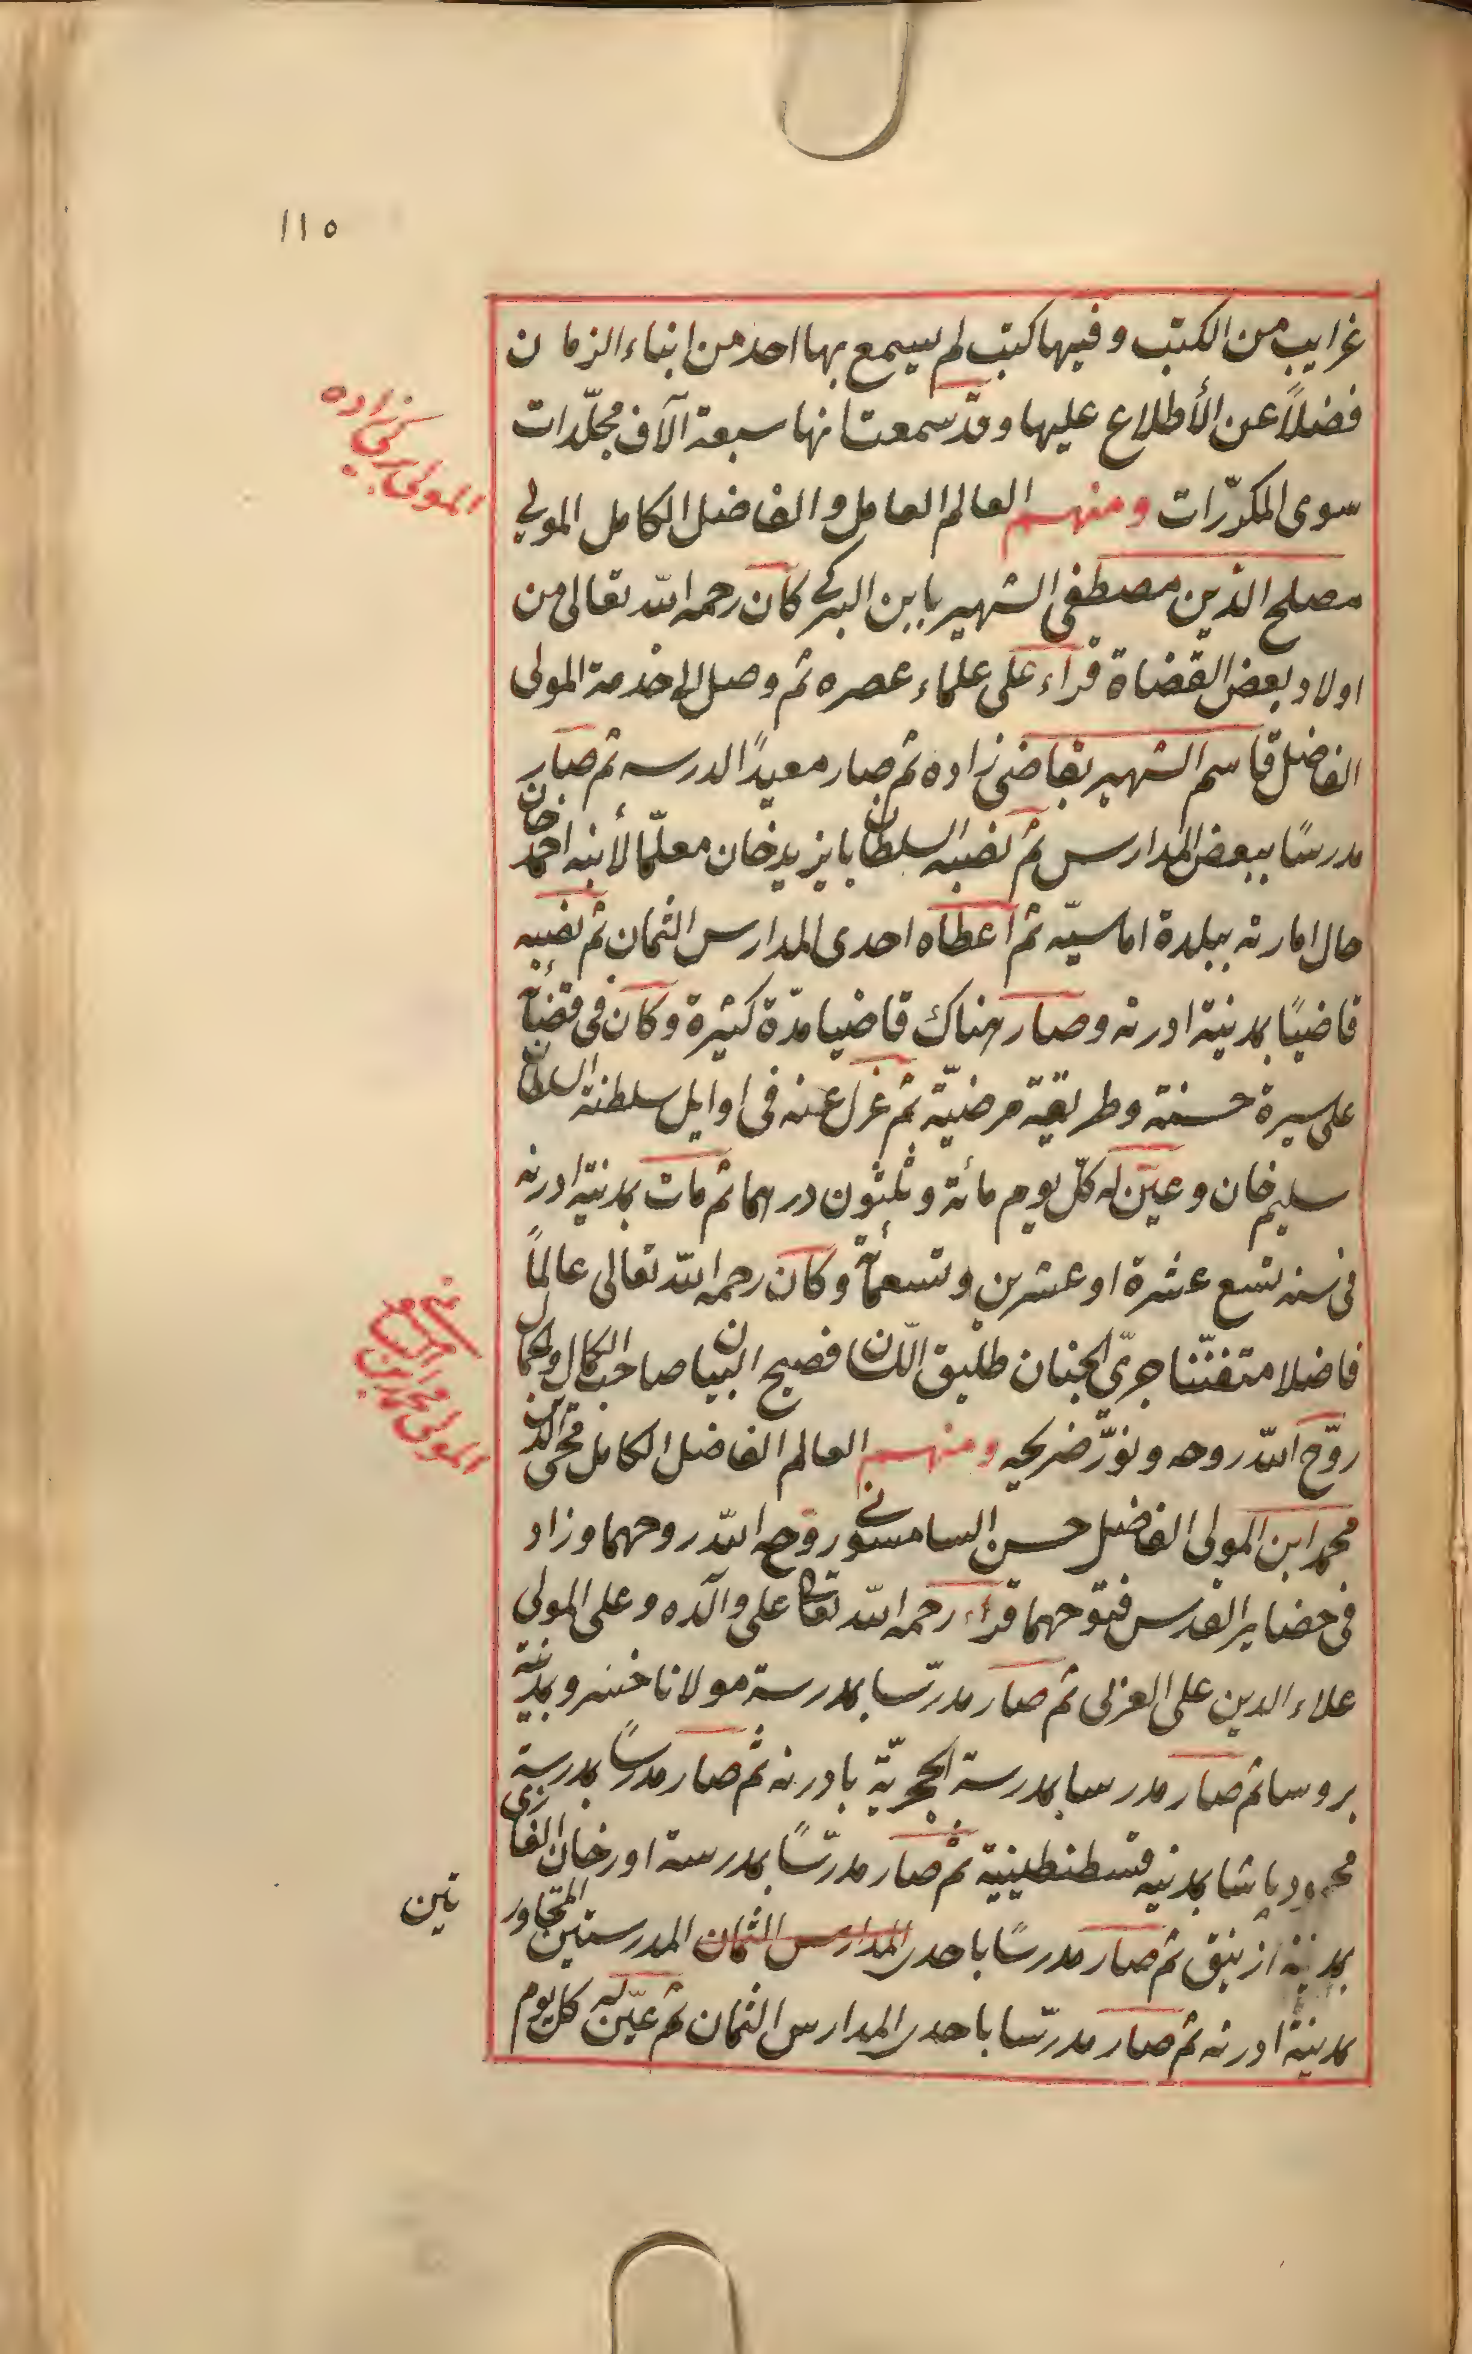 ١١٥
غرايب من الكتب وفيها كتب لم يسمع بها احد من ابناء الزمان
فضلاً عن الأطلاع عليها وقد سمعت انها سبعة الآف مجلّدات
سوى المكرّرات ومنهم العالم العامل والفاضل الكامل المولى
مصلح الدين مصطفى الشهير بابن البركى كان رحمه الله تعالى من
اولاد بعض القضاة قراء على علماء عصره ثم وصل الى خدمة المولى
الفاضل قاسم الشهير بقاضى زاده ثم صار معيدًا لدرسه ثم صار
مدرسًا ببعض المدارس ثم نصبه السلطان بايزيد خان معلّما لأبنه احمد خان
حال امارته ببلدة اماسيّه ثم اعطاه احدى المدارس الثمان ثم نصبه
قاضيًا بمدينة ادرنه وصار هناك قاضيا مدّة كثيرة وكان فى قضائه
على سيرة حسنة وطريقة مرضيّة ثم عزل عنه فى اوايل سلطنة السلطان
سليم خان وعيّن له كلّ يوم مائة وثلثون درهما ثم مات بمدينة ادرنه
فى سنه تسع عشرة او عشرين وتسعمائة وكان رحمه الله تعالى عالماً
فاضلا متفنّنا جرىّ الجنان طليق اللّسان فصيح البيان صاحب الكمال والجمال
روّح الله روحه ونوّر ضريحه ومنهم العالم الفاضل الكامل محى الدين
محمد ابن المولى الفاضل حسن السامسونى روّح الله روحهما وزاد
فى حضاير القدس فتوحهما قراء رحمه الله تعالى على والده وعلى المولى
علاء الدين على العربى ثم صار مدرّسا بمدرسة مولانا خسرو بمدينة
بروسا ثم صار مدرسا بمدرسة الحجريّة بادرنه ثم صار مدرسًا بمدرسة
محمود پاشا بمدينه قسطنطينية ثم صار مدرّسًا بمدرسة اورخان الغازى
بمدينة ازنيق ثم صار مدرسًا باحدى المدارس الثمان المدرستين المتجاور
تين
بمدينة ادرنه ثم صار مدرّسا باحدى المدارس الثمان ثم عيّن له كل يوم
المولى بركى زاده
المولى محمد بن السامسونى